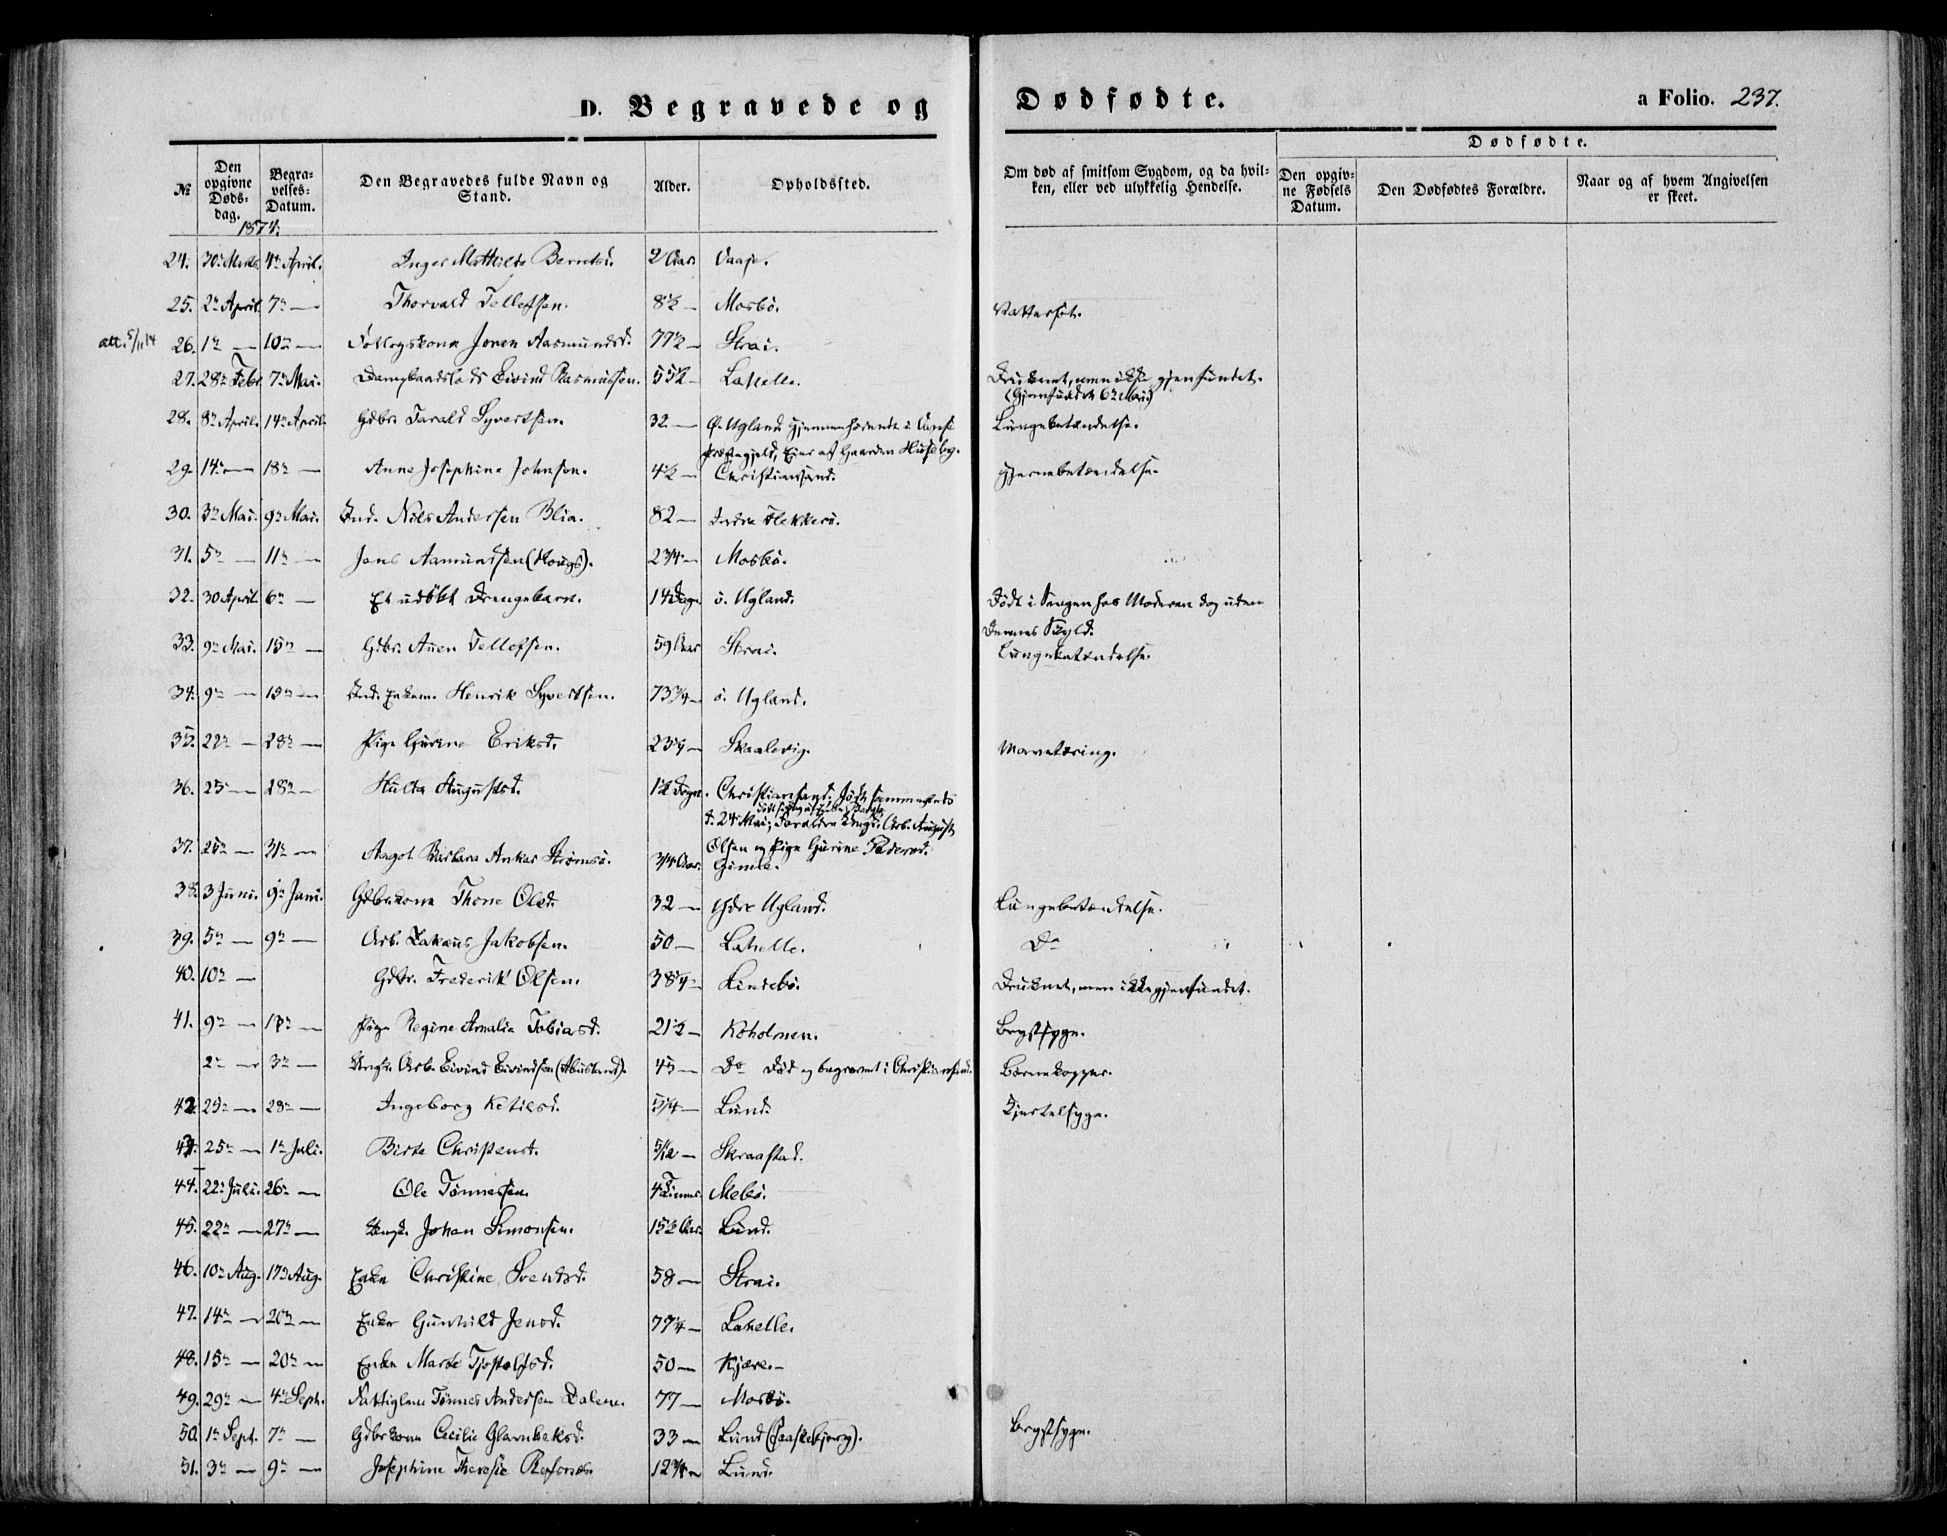 D. Begravede og Dødfødte. a Folio. 237.
Dødfødte.
№ Den opgivne Døds-dag. Begra-velses-Datum. Den Begravedes fulde Navn og Stand. Alder. Opholdssted. Om død af smitsom Sygdom, og da hvil-ken, eller ved ulykkelig Hendelse. Den opgiv-ne Fødsels Datum. Den Dødfødtes Forældre. Naar og af hvem Angivelsen er skeet.
1874.
24. 30te Marts. 4de April. Inger Mathilde Berntsd. 2 Aar. Vaaje.
25. 2n April. 7n — Thorvald Tellefsen. 8½ — Mosbö. Vattersot.
att. 5/11 14 26. 1n — 10n — Joren Aasmundsd. 77½ — Strai.
27. 28n Febr. 7n Mai. Eivind Rasmussen. 55½ — Lahelle. Druknet, men ikke gjenfundet.
(Gjenfundet 6n Mai)
28. 8n April. 14n April. Gdbr. Tarald Syvertsen. 32 — Ø. Ugland, Lungebetændelse.
Præstegjeld, Eier af Gaarden Huseby.
29. 14n — 18n — Anne Josephine Johnsen. 4½ — Christianssand. Hjernebetændelse.
30. 3n Mai. 9n Mai. Ind. Nils Andersen Blia. 82 — Indre Flekkerö.
31. 5n — 11n — Jens Aamundsen (Hougs). 2¾ — Mosbö.
32. 30 April. 6n — Et udöbt Drengebarn. 14 Dage. ö. Ugland. Dödt i Sengen hos Moderen dog uden
Dennes Skyld.
33. 9n Mai. 15n — Gdbr. Auen Tellefsen. 59 Aar Strai. Lungebetændelse.
34. 9n — 15n — Ind. Enkem. Henrik Syvertsen. 73¾ — ö. Ugland.
35. 22n — 28n — Pige Gurine Eriksd. 23¼ — Skaalevig. Marvetæring.
36. 25 — 28n — Hulta Augustsd. 1½ Dogn. Christianssand. Født sammesteds
d. 24 Mai; Forældre Ungk. Arb. August
Olsen og Pige Gurine Pedersd.
37. 25n — 31n — Aagot Barbara Anker Strömsö. ¾ Aar. Gimle.
38. 3 Juni. 9n Juni. Gdbrkone Thone Olsd. 32 — Ydre Ugland. Lungebetændelse.
39. 5n — 9n — Arb. Zakæus Jakobsen. 50 — Lahelle. Do
40. 10n — Gdbr. Frederik Olsen. 38¼ — Lindebö. Druknet, men ikke gjenfundet.
41. 9n — 17n — Pige Regine Amalie Tobiasd. 21½ — Koholmen. Brystsyge.
2n — 3n — Ungk. Arb. Eivind Eivindsen (Abusland). 45 — Do Død og begravet i Christianssand. Børnekopper.
42. 25n — 28n — Ingeborg Ketilsd. 5¼ — Lund. Kjertelsyge.
43. 25n — 1n Juli. Birte Christensd. 5/12 — Skraastad.
44. 22n Juli. 26n — Ole Tönnessen. 4 Timer. Mebö.
45. 22n — 27n — Ungk. Johan Simonsen. 15½ Aar. Lund.
46. 10n Aug. 17n Aug. Enke Christine Svendsd. 58 — Strai.
47. 14n — 20n — Enke Gunhild Jensd. 77¼ — Lahelle.
48. 15n — 20n — Enke Marte Tjöstolfsd. 50 — Kjære. —
49. 29n — 4n Sept. Fattiglem Tönnes Andersen Dalene. 77 — Mosbö.
50. 1n Sept. 7n — Gdbrkone Cecilie 33 — Lund (Paaskebjerg). Brystsyge.
51. 3n — 9n — Josephine Theresie 12¾ — Lund.